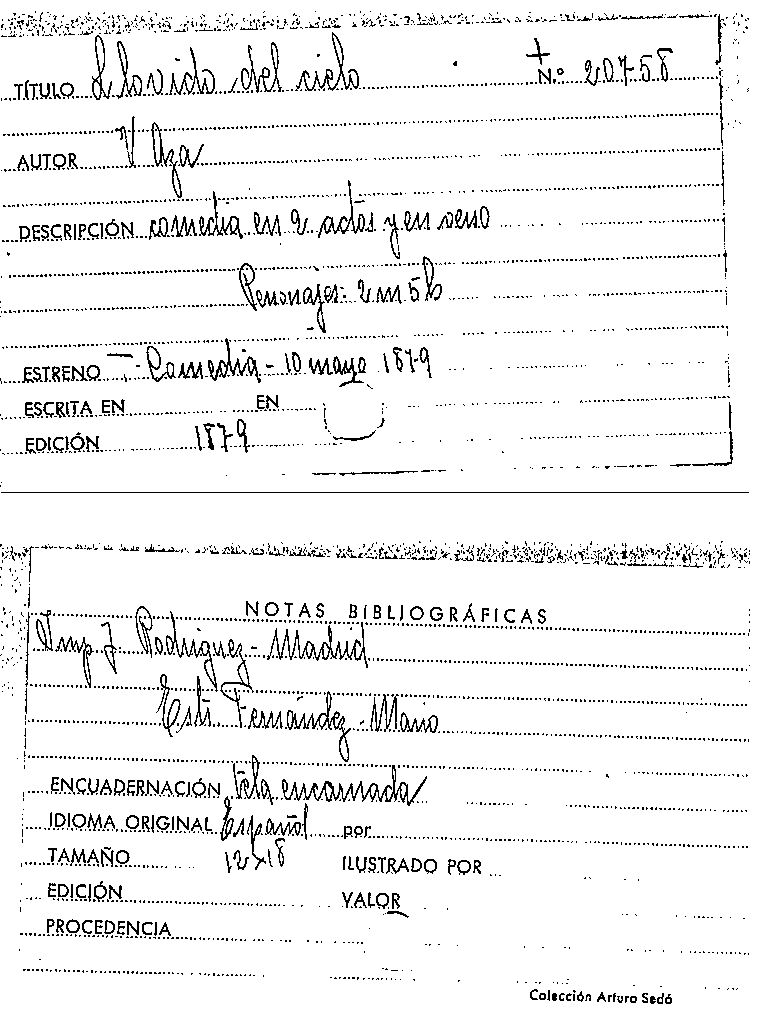 TÍTULO Llovido del cielo + N.º 20758
AUTOR V Aza
DESCRIPCIÓN comedia en 2 actos y en verso
Personajes: 2 m 5 h
ESTRENO T. Comedia - 10 mayo 1879
ESCRITA EN EN
EDICIÓN 1879
NOTAS BIBLIOGRÁFICAS
Imp J Rodriguez - Madrid
Estr Fernández - Mario
ENCUADERNACIÓN tela encarnada
IDIOMA ORIGINAL Español por
TAMAÑO 12x18 ILUSTRADO POR
EDICIÓN VALOR
PROCEDENCIA
Colección Arturo Sedó